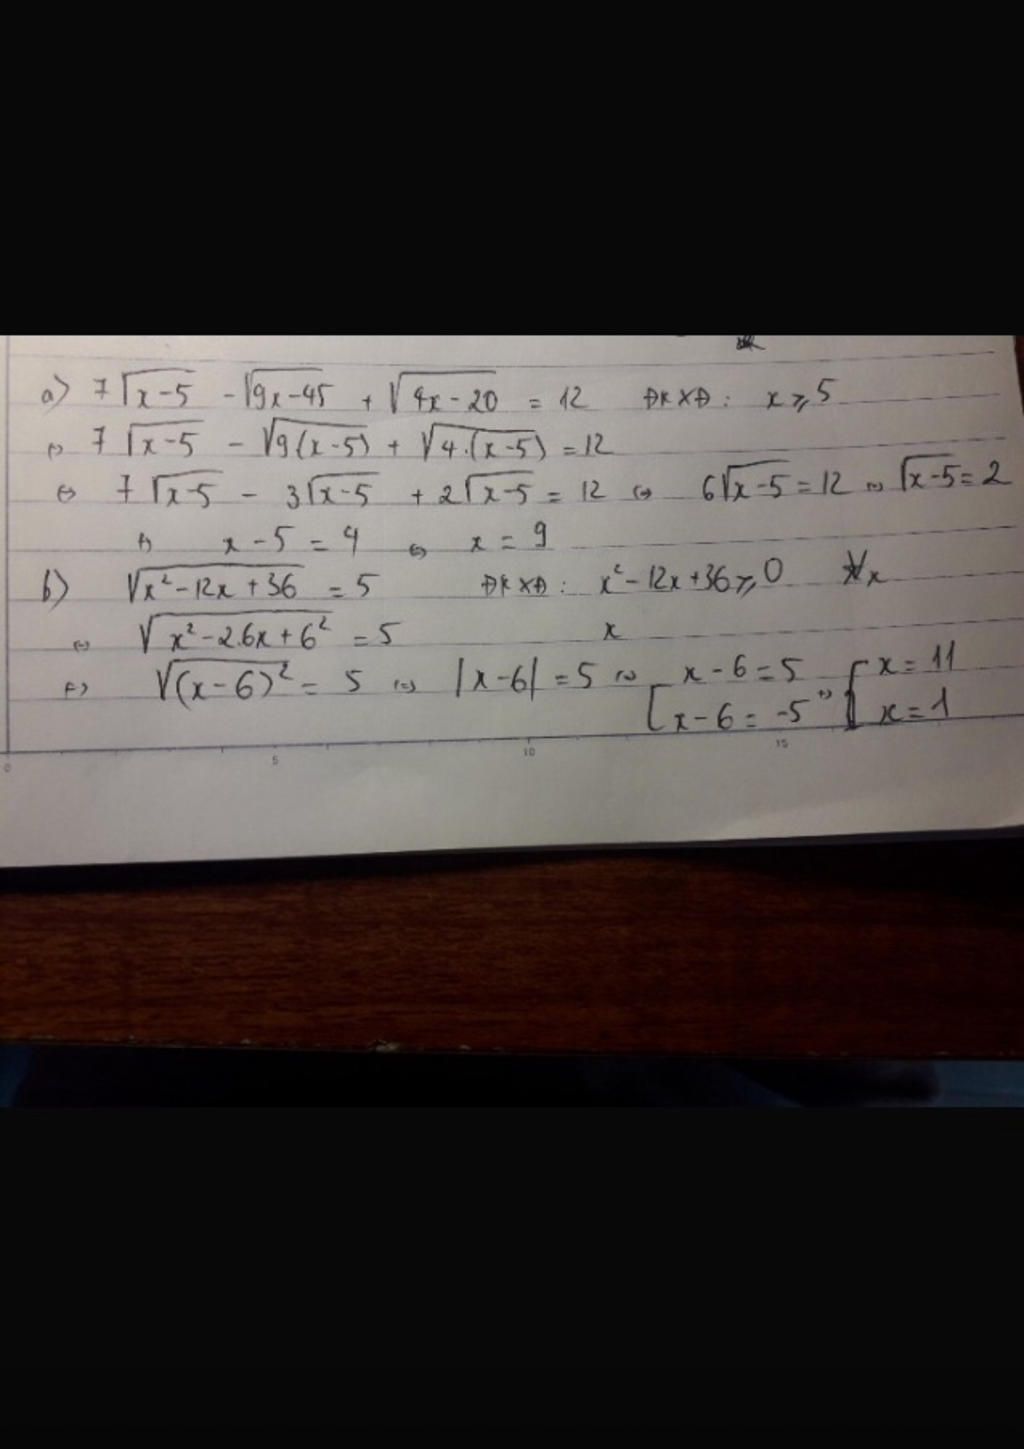 a) 7√(x-5) - √(9x-45) + √(4x-20) = 12 ĐKXĐ: x ⩾ 5
⇔ 7√(x-5) - √(9.(x-5)) + √(4.(x-5)) = 12
⇔ 7√(x-5) - 3√(x-5) + 2√(x-5) = 12 ⇔ 6√(x-5) = 12 ⇔ √(x-5) = 2
⇔ x - 5 = 4 ⇔ x = 9
b) √(x² - 12x + 36) = 5 ĐKXĐ: x² - 12x + 36 ⩾ 0 ∀x
⇔ √(x² - 2.6x + 6²) = 5 x
⇔ √((x-6)²) = 5 ⇔ |x-6| = 5 ⇔ [ x - 6 = 5 ⇔ [ x = 11
x - 6 = -5 x = 1
0 5 10 15